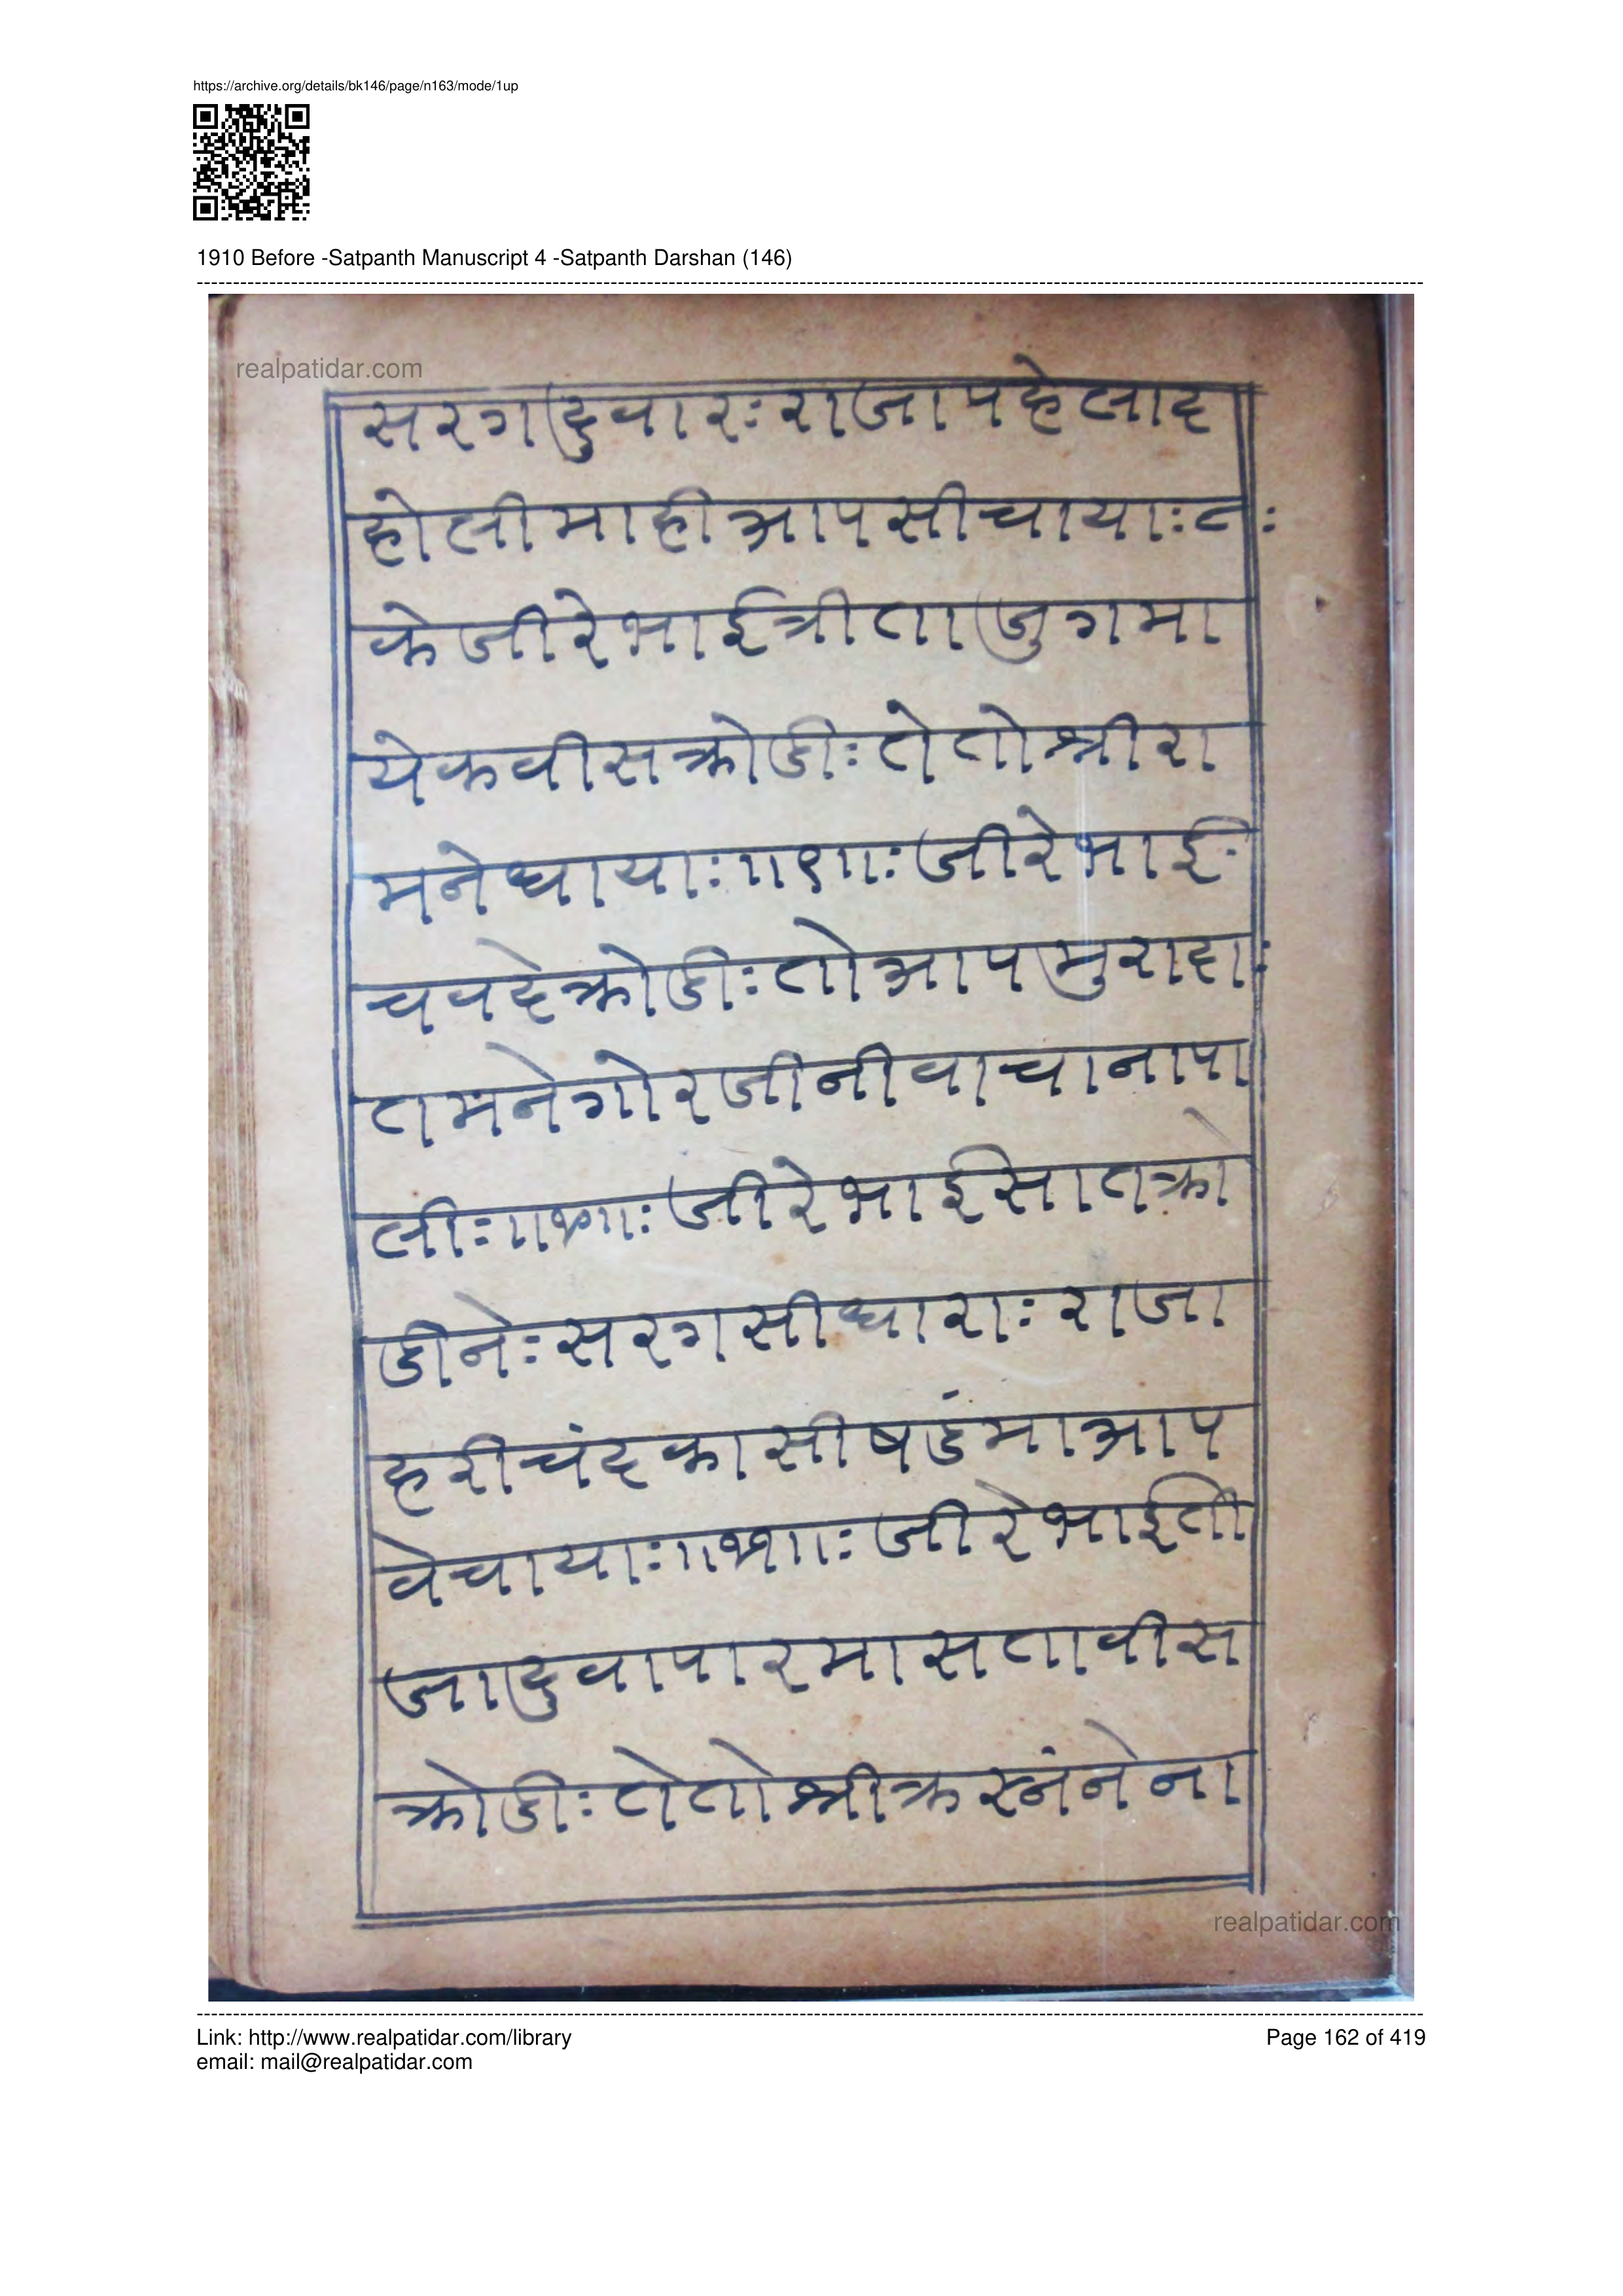 https://archive.org/details/bk146/page/n163/mode/1up
1910 Before -Satpanth Manuscript 4 -Satpanth Darshan (146)
realpatidar.com
सरगदुवारः राजापहेलाद
होलीमाहीआपसीचायाः८ः
केजीरेभाईत्रीताजुगमा
येकवीसक्रोडीः तेतोश्रीरा
मनेधायाः॥९॥ः जीरेभाईः
चवदेक्रोडीः तोआपमुरादाः
तमनेगोरजीनीवाचानापा
लीः॥१०॥ः जीरेभाईसातक्रो
डीनेः सरगसीधाराः राजा
हरीचंदकासीषडंमाआप
वेचायाः॥११॥ः जीरेभाईती
जादुवापारमासतावीस
क्रोडीः तेतोश्रीक्रस्नंनेना
realpatidar.com
Link: http://www.realpatidar.com/library
email: mail@realpatidar.com
Page 162 of 419